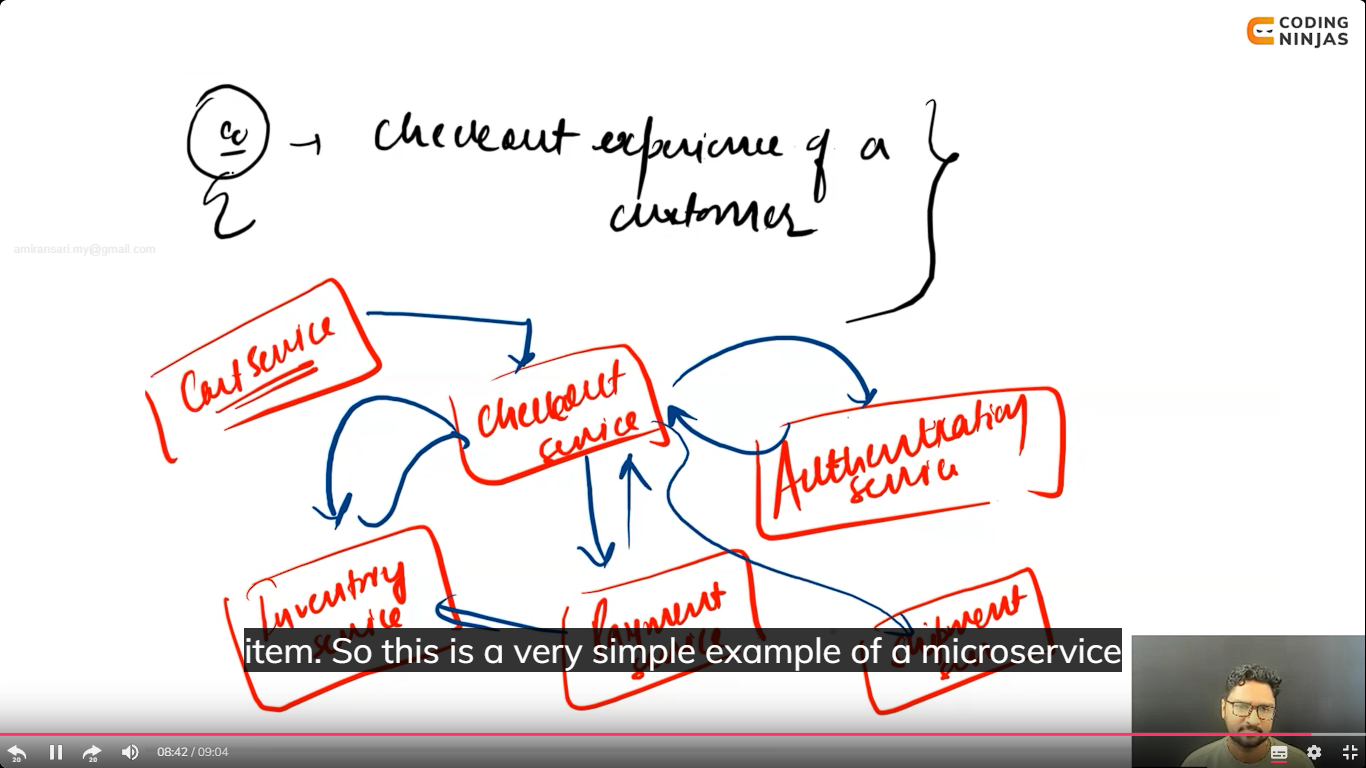 CODING
NINJAS
→ checkout experience of a
customer
amiransari.my@gmail.com
Cart service
checkout
service
Authentication
service
Inventory
service
Payment
item. So this is a very simple example of a microservice
20
20
08:42 / 09:04